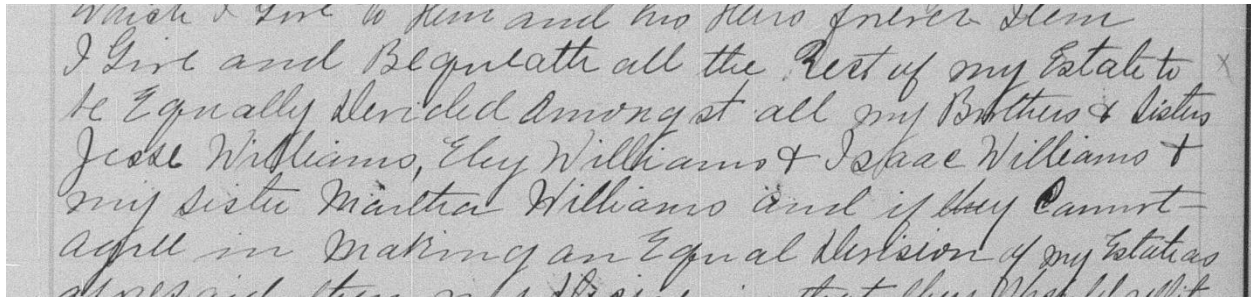 which I Give to Him and his Heirs forever Item
I Give and Bequeath all the Rest of my Estate to
be Equally Devided Amongst all my Brothers & Sisters
Jesse Williams, Eley Williams & Isaac Williams &
my sister Martha Williams and if they Cannot
agree in making an Equal Devision of my Estate as
aforesaid then my Desire is that they should